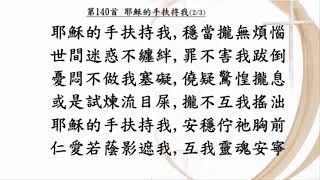 第140首 耶穌的手扶持我(2/3)
耶穌的手扶持我, 穩當攏無煩惱
世間迷惑不纏絆, 罪不害我跋倒
憂悶不做我塞礙, 僥疑驚惶攏息
或是試煉流目屎, 攏不互我搖泏
耶穌的手扶持我, 安穩佇祂胸前
仁愛若蔭影遮我, 互我靈魂安寧